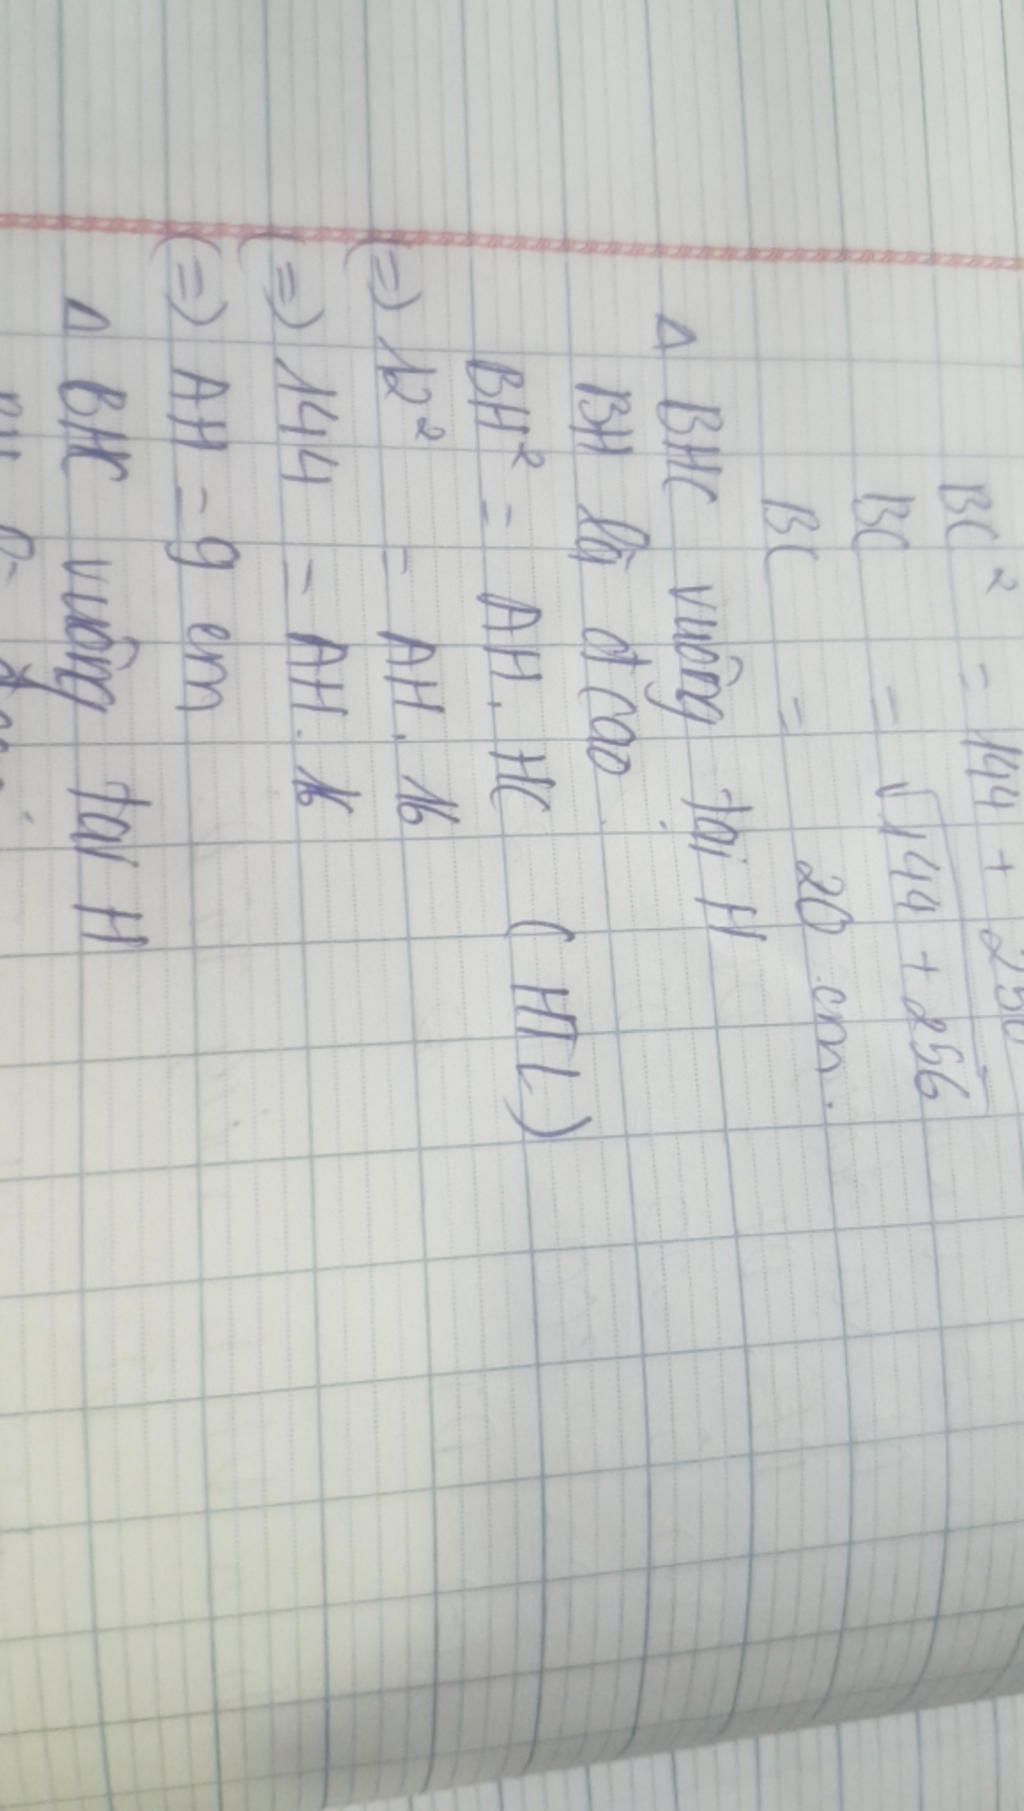 BC² = 144 + 256
BC = √144 + 256
BC = 20 cm.
Δ BHC vuông tại H
BH là đ cao
BH² = AH. HC ( HTL )
(=) 12² = AH. 16
(=) 144 = AH. 16
(=) AH = 9 cm
Δ BHC vuông tại H